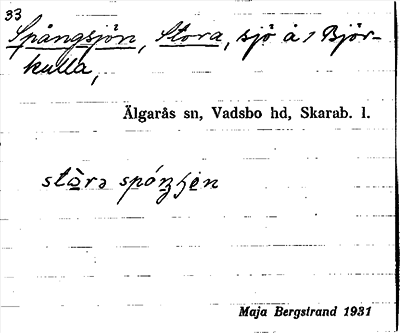 33
Spångsjön, Stora, sjö å 1 Björ-
kulla,
Älgarås sn, Vadsbo hd, Skarab. l.
Maja Bergstrand 1931